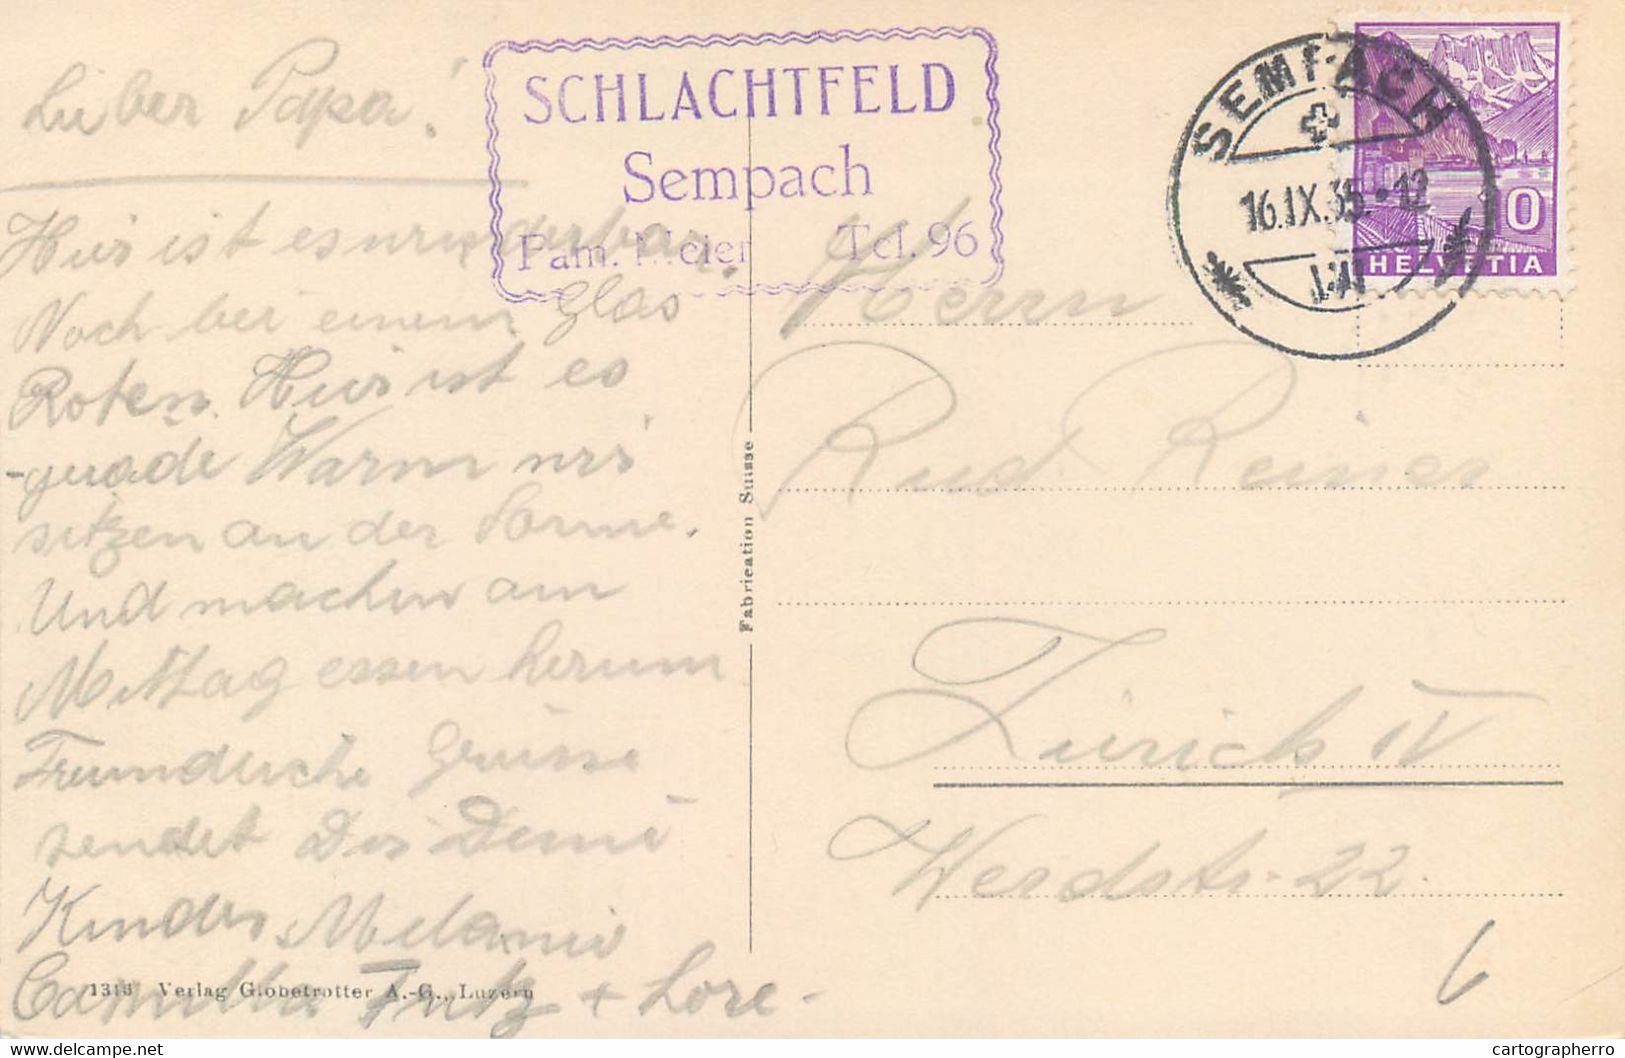 Lieber Papa!
Hier ist es wunderbar.
Noch bei einem Glas
Roten. Hier ist es
gerade Warm wir
sitzen an der Sonne.
Und machen am
Mittag essen herum
Freundliche Grüsse
sendet Dir Deine
Kinder, Melanie
Camilla Fritz + Lore -
SCHLACHTFELD
Sempach
Fam. Meier Tel. 96
SEMPACH
16.IX.35.-12
HELVETIA
Herrn
Rud. Reiner
Zürich IV
Werdstr. 22.
6
Fabrication Suisse
Verlag Globetrotter A.-G., Luzern
www.delcampe.net
cartographerro